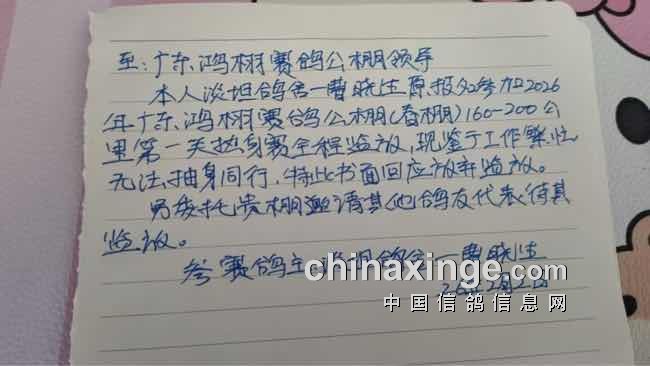 至:广东鸿栩赛鸽公棚领导
本人淡坦鸽舍一曹晓生原报名参加2026
年广东鸿栩赛鸽公棚(春棚)160-200公
里第一关热身赛全程监放,现鉴于工作繁忙
无法抽身同行,特此书面回应放弃监放。
另委托贵棚邀请其他鸽友代表待其
监放。
参赛鸽主 淡坦鸽舍一曹晓生
26年2月2日
chinaxinge.com
中国信鸽信息网